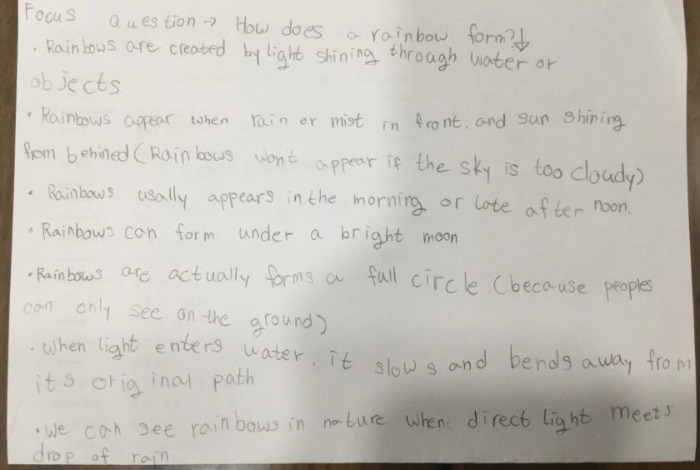 Focus Question → How does a rainbow form?↓
• Rainbows are created by light shining through water or
objects
• Rainbows appear when rain or mist in front, and sun shining
from behined (Rainbows won't appear if the sky is too cloudy)
• Rainbows usally appears in the morning or late afternoon.
• Rainbows can form under a bright moon
• Rainbows are actually forms a full circle (because peoples
can only see on the ground)
• When light enters water, it slows and bends away from
its original path
• We can see rainbows in nature when direct light meets
drop of rain